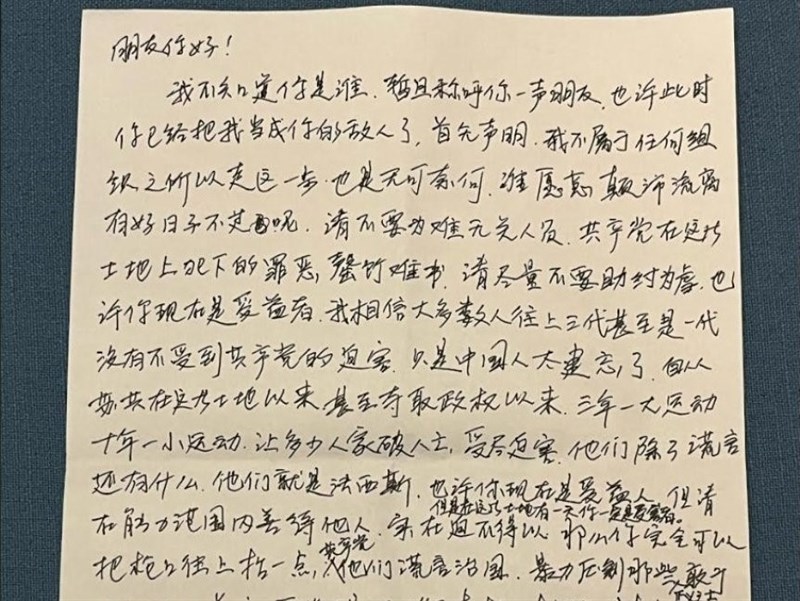 朋友你好！
我不知道你是谁.暂且称呼你一声朋友.也许此时
你已经把我当成你的敌人了.首先声明.我不属于任何组
织之所以走这一步.也是无可奈何.谁愿意颠沛流离
有好日子不过呢.请不要为难无关人员.共产党在这片
土地上犯下的罪恶,罄竹难书.请尽量不要助纣为虐.也
许你现在是受益者.我相信大多数人往上三代甚至是一代
没有不受到共产党的迫害.只是中国人太健忘了.自从
苏共在这片土地以来.甚至夺取政权以来.三年一大运动
十年一小运动.让多少人家破人亡,受尽迫害.他们除了谎言
还有什么.他们就是法西斯.也许你现在是受益人.但请
但是在这片土地有一天你一定是受害者.
在能力范围内善待他人.实在迫不得以.那么你完全可以
共产党
把枪口往上抬一点,他们谎言治国.暴力压制那些敢于